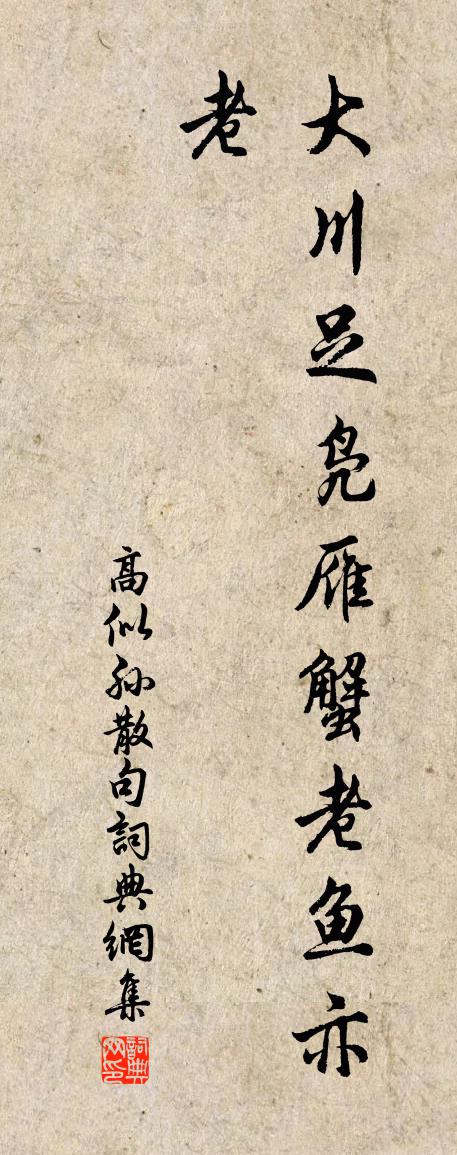 大川足凫雁蟹老鱼亦
老
高似孙散句詞典網集
詞典
网印